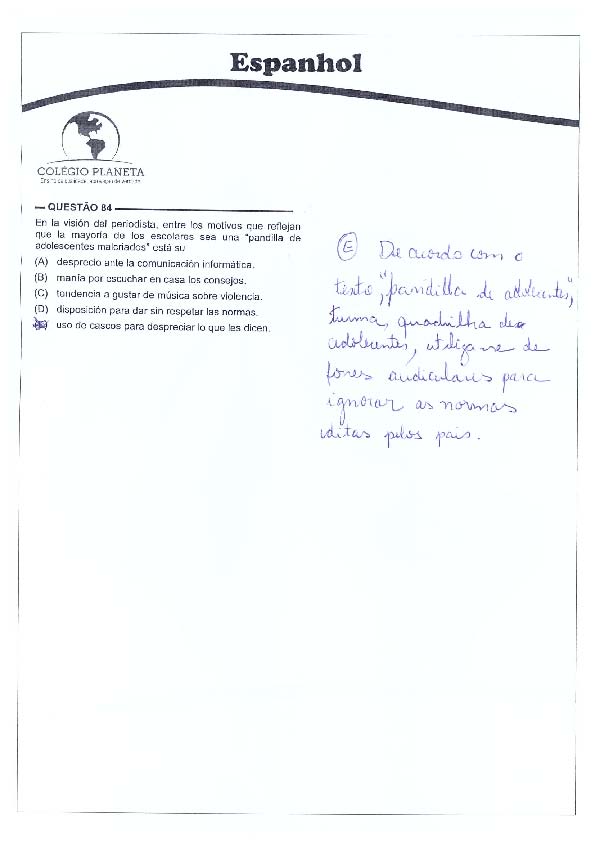 Espanhol
COLÉGIO PLANETA
QUESTÃO 84
En la visión del periodista, entre los motivos que reflejan
que la mayoría de los escolares sea una "pandilla de
adolescentes malcriados" está su
(A) desprecio ante la comunicación informática.
(B) manía por escuchar en casa los consejos.
(C) tendencia a gustar de música sobre violencia.
(D) disposición para dar sin respetar las normas.
uso de cascos para despreciar lo que les dicen.
(E) De acordo com o
texto, "pandilla de adolescentes",
turma, quadrilha de
adolescentes, utiliza-se de
fones auriculares para
ignorar as normas
ditas pelos pais.